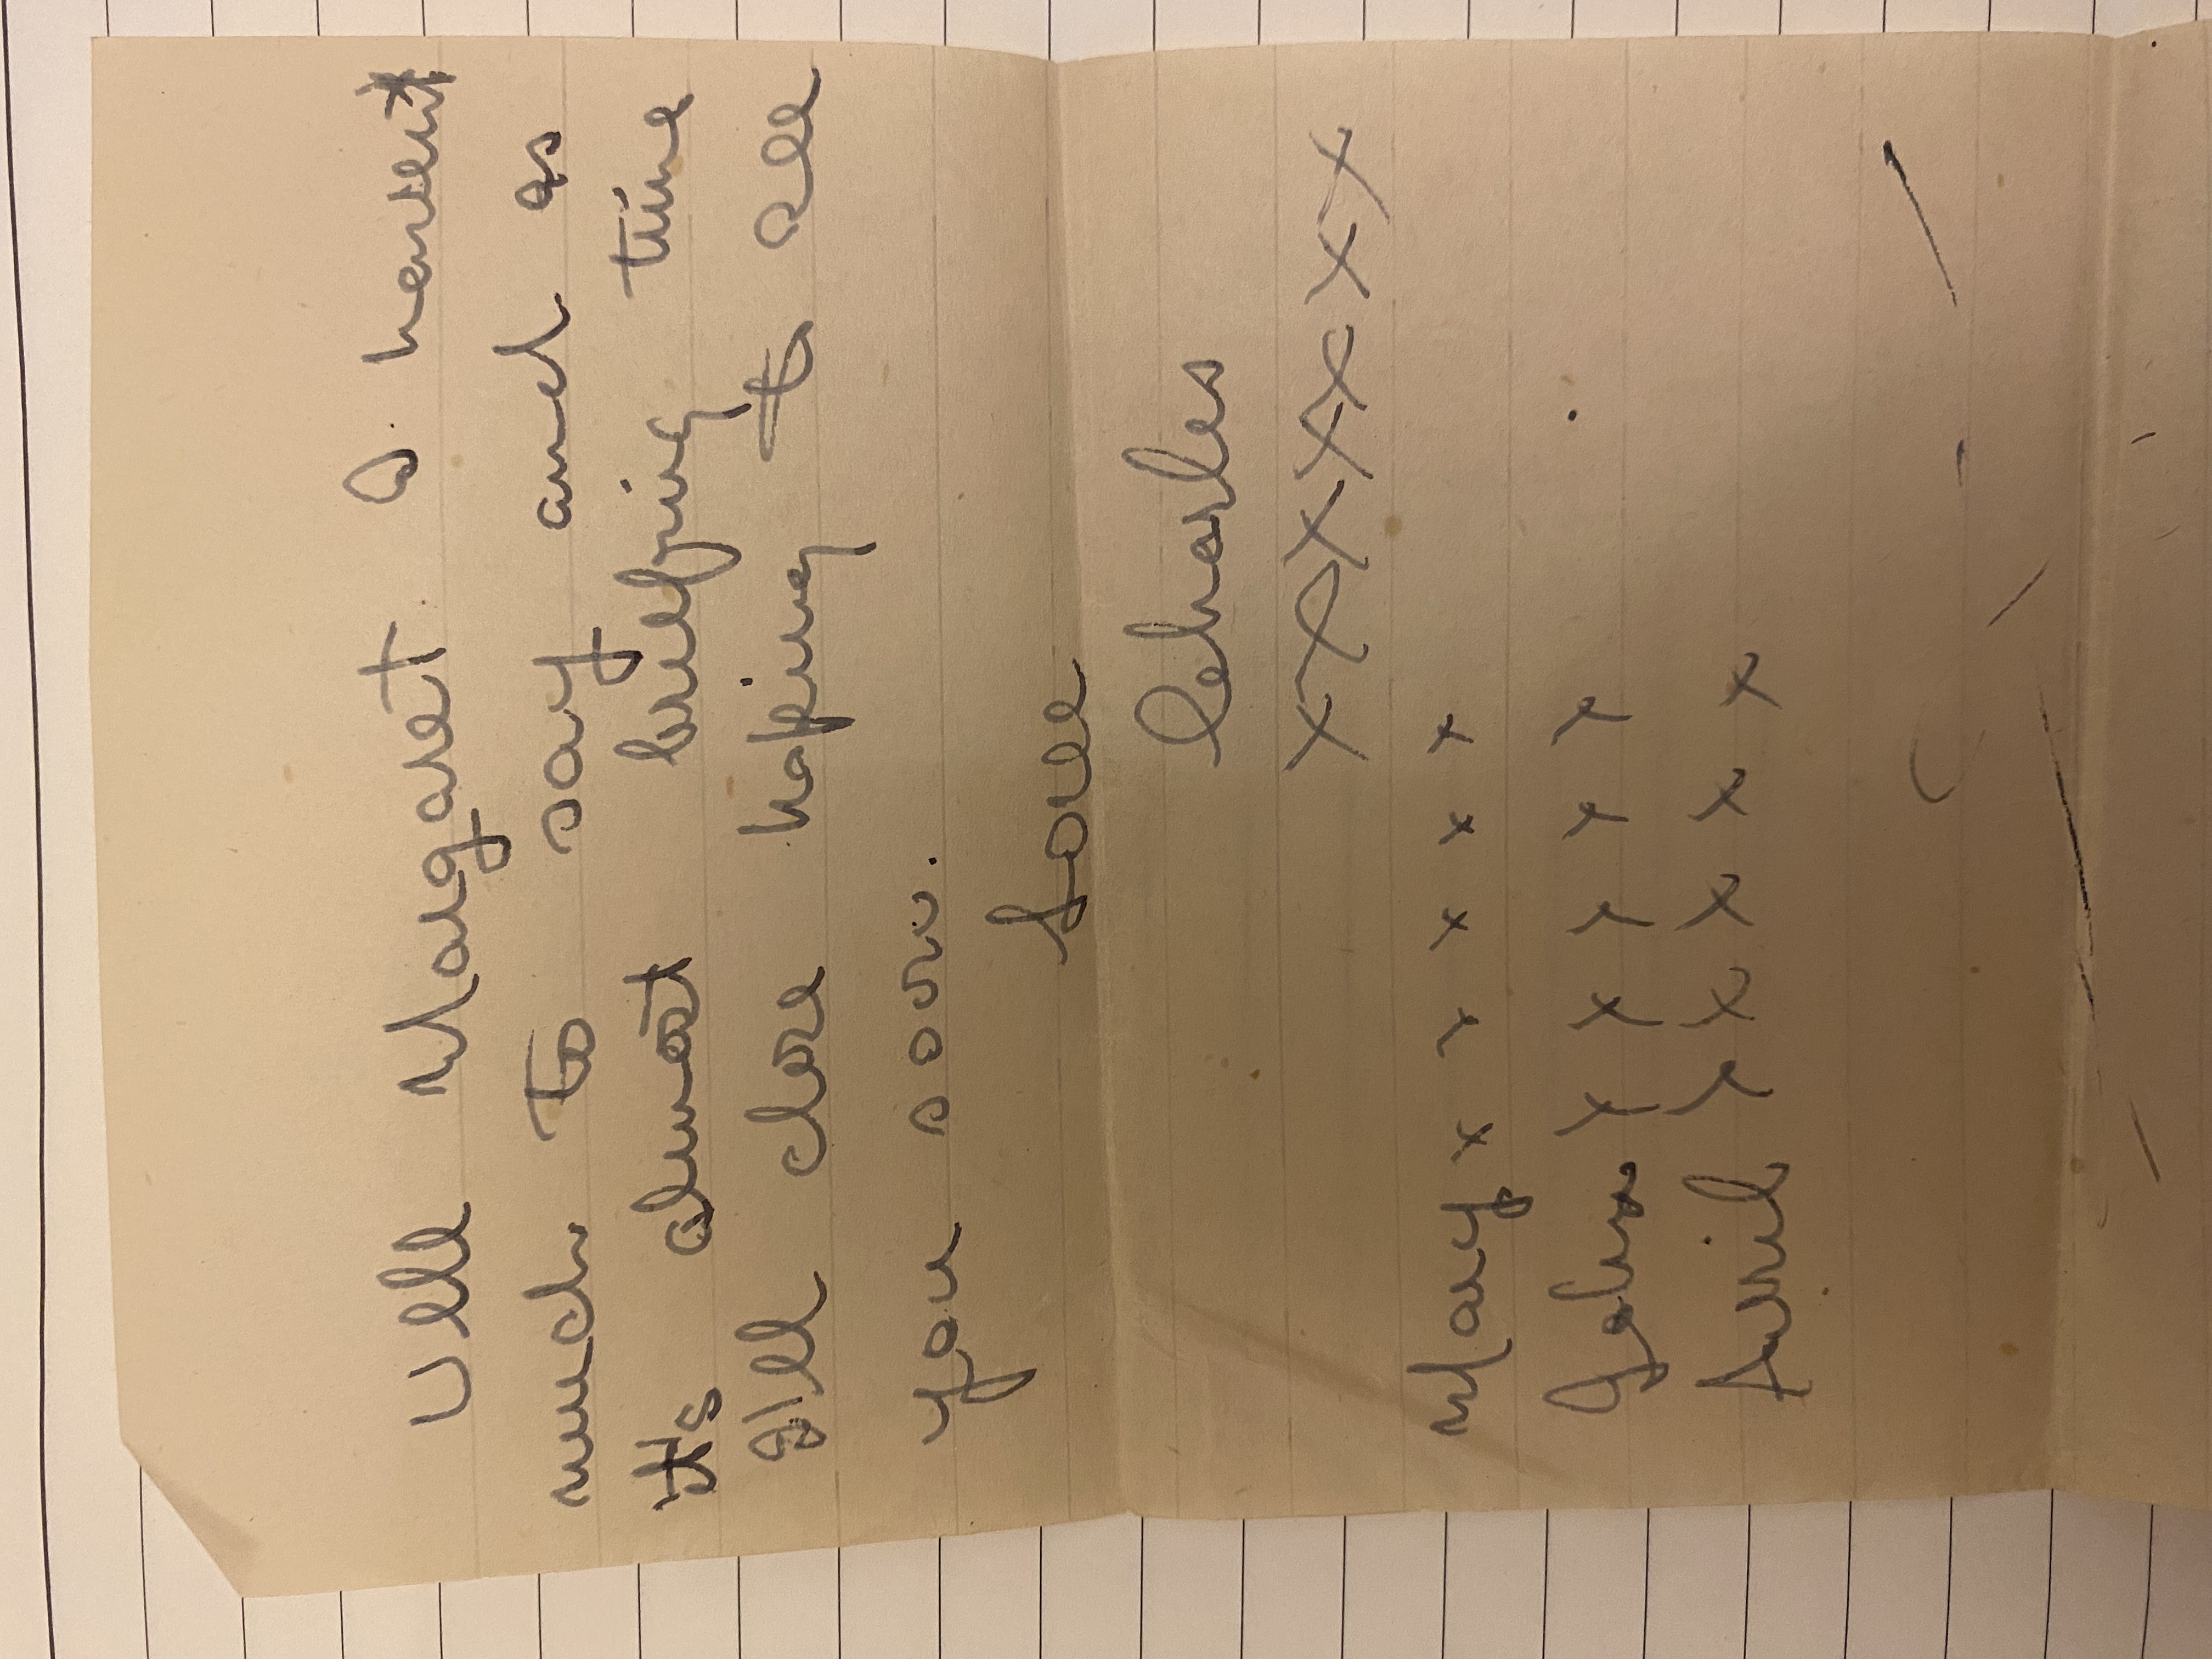 Well Margaret I havent
much to say and as
its almost briefing time
I'll close hoping to see
you soon.
Love
Charles
x x x x x x x
Mary x x x x x
John x x x x x
Avril x x x x x